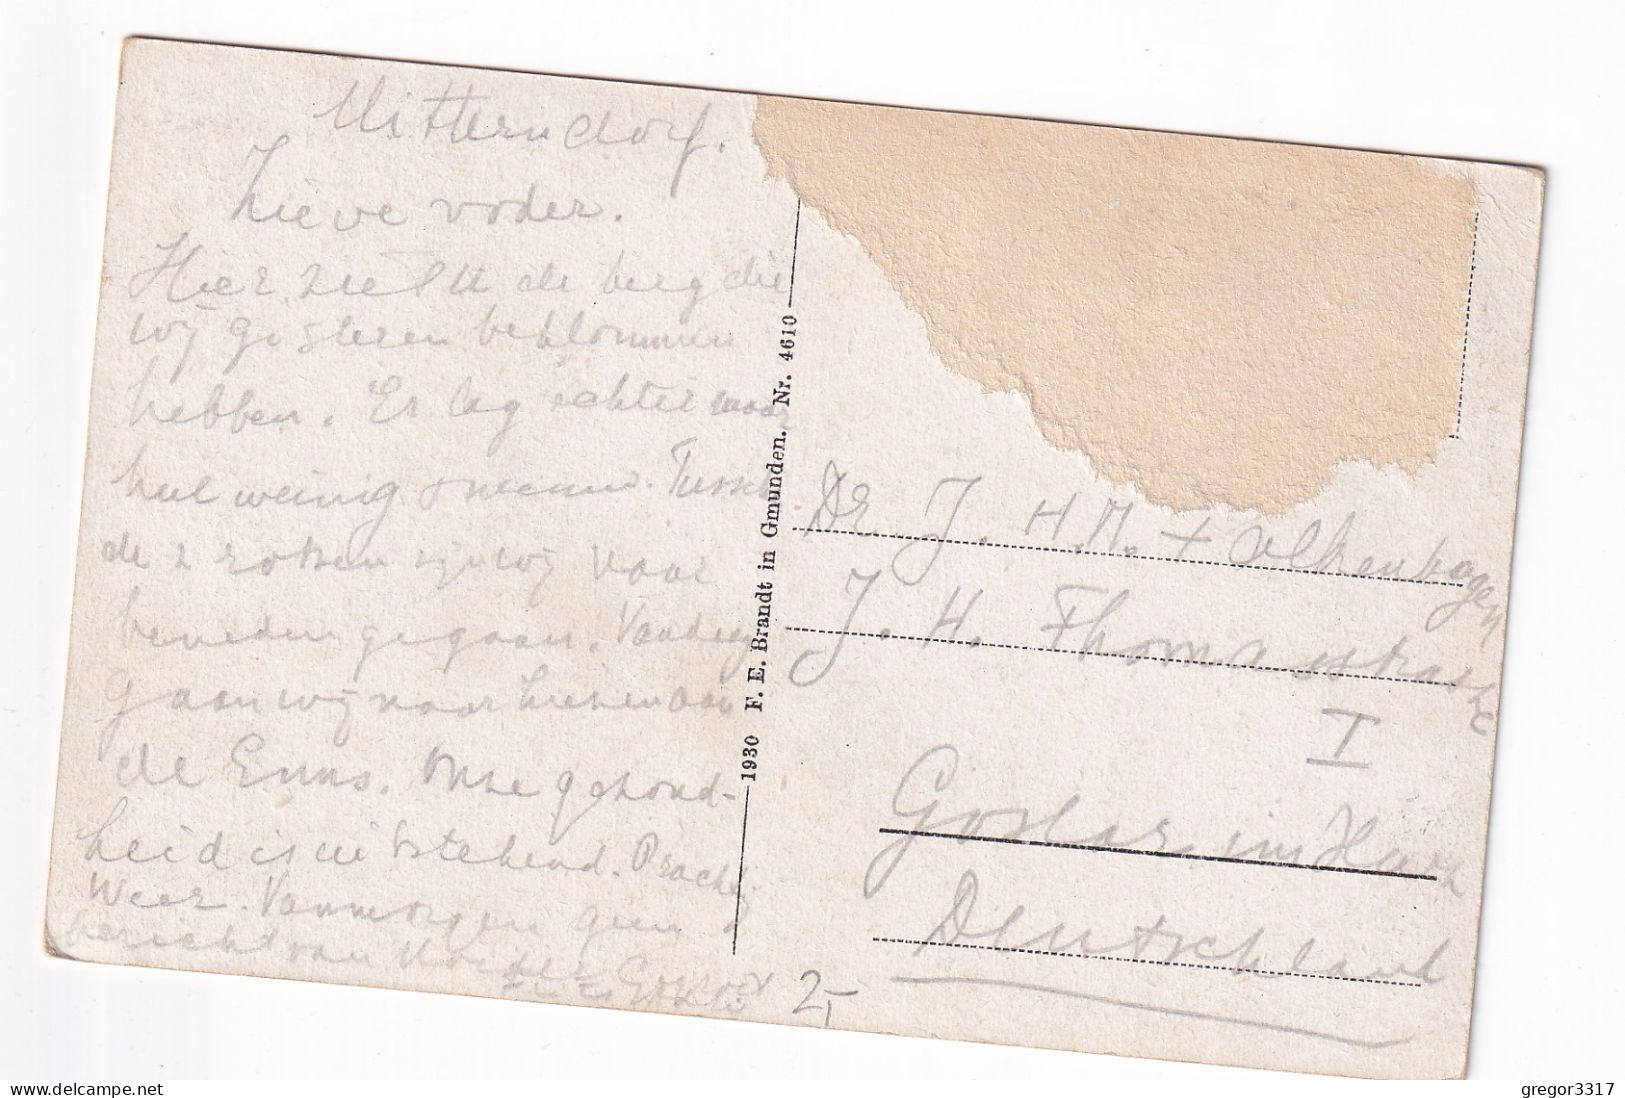 Mitterndorf.
Lieve voder.
Hier ziet U de berg die
wij gisteren beklommen
hebben. Er lag echter maar
heel weinig sneeuw. Tussen
de 2 rotsen zijn wij naar
beneden gegaan. Vandaag
gaan wij naar Liezen aan
de Enns. Onze gezond-
heid is uitstekend. Prachtig
weer. Vanmorgen geen
bericht van
1930 F. E. Brandt in Gmunden. Nr. 4610
Dr. J. H. M. Falkenhagen
J. H. Thomasstrasse
I
Goslar im Harz
Deutschland
2,-
gregor3317